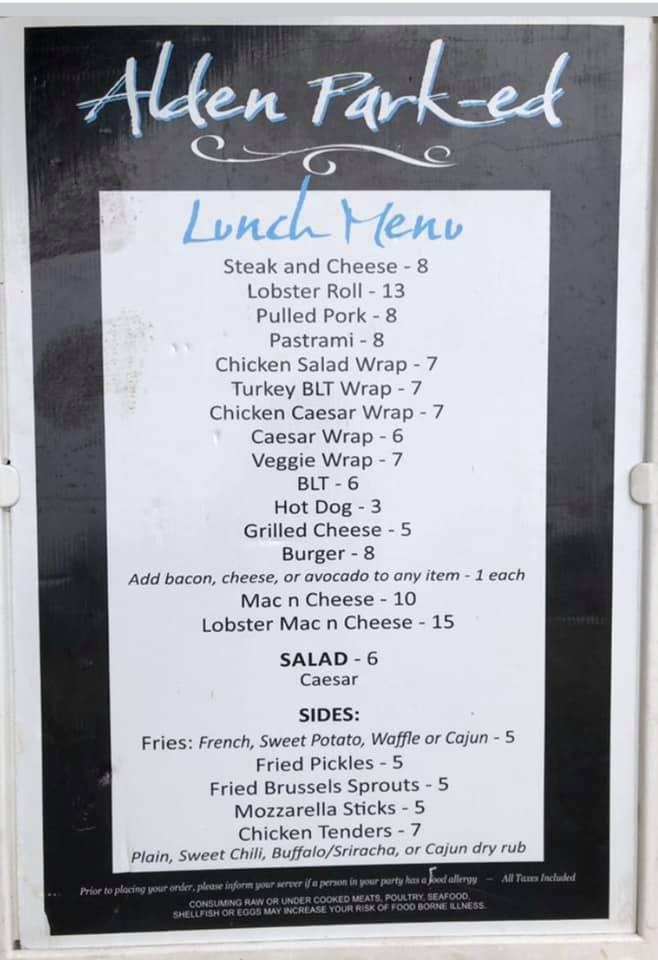 Alden Park-ed
Lunch Menu
Steak and Cheese - 8
Lobster Roll - 13
Pulled Pork - 8
Pastrami - 8
Chicken Salad Wrap - 7
Turkey BLT Wrap - 7
Chicken Caesar Wrap - 7
Caesar Wrap - 6
Veggie Wrap - 7
BLT - 6
Hot Dog - 3
Grilled Cheese - 5
Burger - 8
Add bacon, cheese, or avocado to any item - 1 each
Mac n Cheese - 10
Lobster Mac n Cheese - 15
SALAD - 6
Caesar
SIDES:
Fries: French, Sweet Potato, Waffle or Cajun - 5
Fried Pickles - 5
Fried Brussels Sprouts - 5
Mozzarella Sticks - 5
Chicken Tenders - 7
Plain, Sweet Chili, Buffalo/Sriracha, or Cajun dry rub
Prior to placing your order, please inform your server if a person in your party has a food allergy — All Taxes Included
CONSUMING RAW OR UNDER COOKED MEATS, POULTRY, SEAFOOD,
SHELLFISH OR EGGS MAY INCREASE YOUR RISK OF FOOD BORNE ILLNESS.